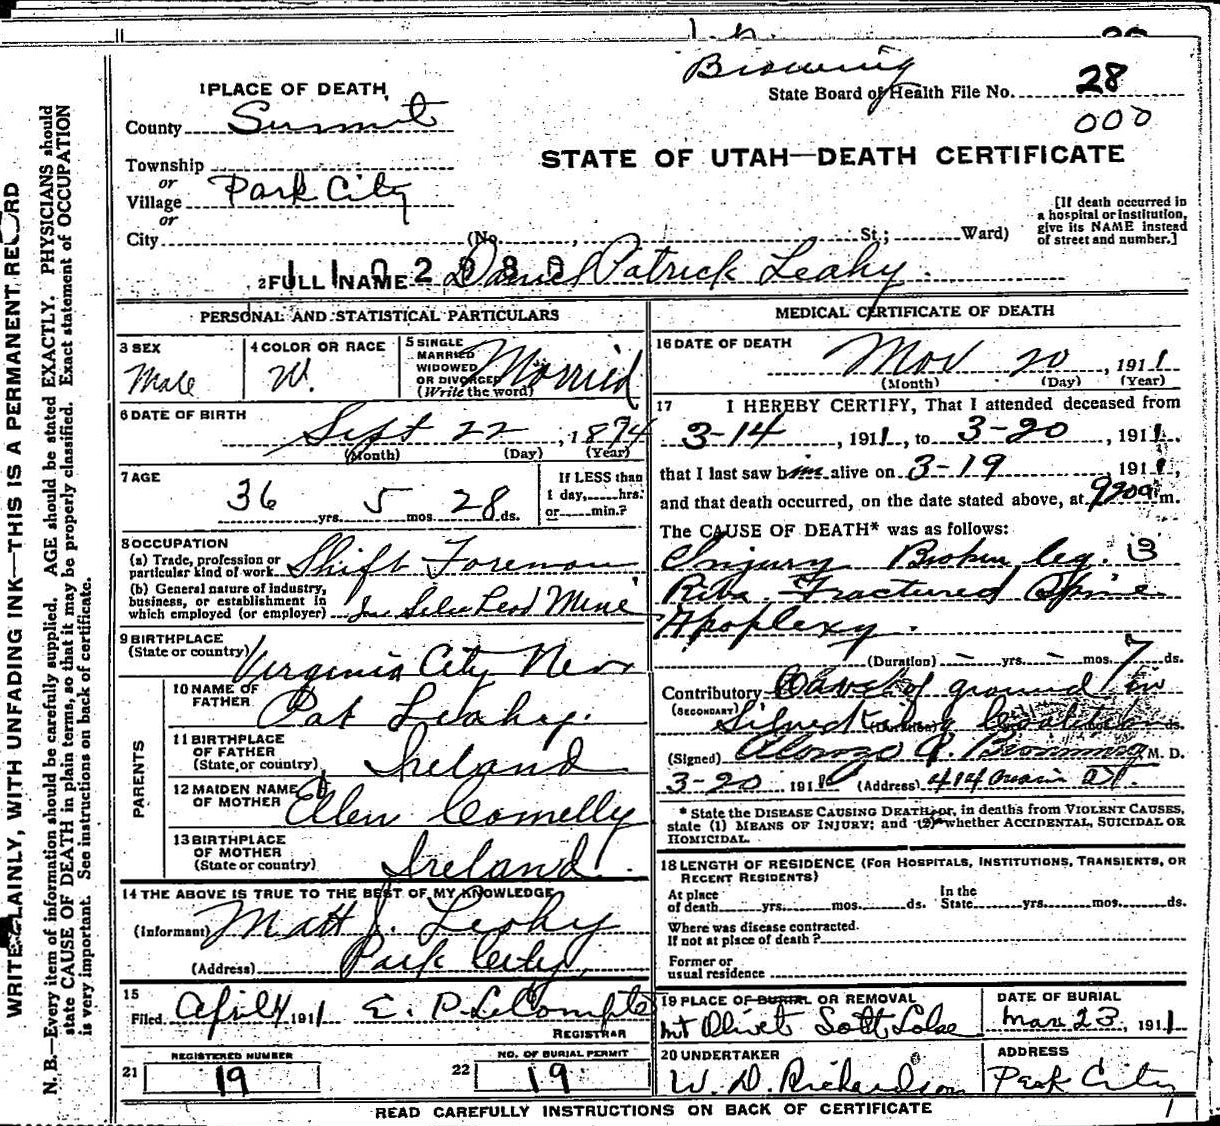 Browning
1 PLACE OF DEATH
State Board of Health File No. 28
County Summit
000
STATE OF UTAH—DEATH CERTIFICATE
Township
or
Village Park City
or
City (No. , St.; Ward)
[If death occurred in a hospital or institution, give its NAME instead of street and number.]
1102080
2 FULL NAME Daniel Patrick Leahy
PERSONAL AND STATISTICAL PARTICULARS
3 SEX Male
4 COLOR OR RACE W.
5 SINGLE MARRIED WIDOWED OR DIVORCED (Write the word) Married
6 DATE OF BIRTH Sept 22, 1874
(Month) (Day) (Year)
7 AGE 36 yrs. 5 mos. 28 ds.
If LESS than 1 day, hrs. or min.?
8 OCCUPATION
(a) Trade, profession or particular kind of work Shift Foreman
(b) General nature of industry, business, or establishment in which employed (or employer) In Silver Lead Mine
9 BIRTHPLACE (State or country) Virginia City Nev
PARENTS
10 NAME OF FATHER Pat Leahy.
11 BIRTHPLACE OF FATHER (State or country) Ireland
12 MAIDEN NAME OF MOTHER Ellen Connelly
13 BIRTHPLACE OF MOTHER (State or country) Ireland
14 THE ABOVE IS TRUE TO THE BEST OF MY KNOWLEDGE
(Informant) Matt J. Leahy
(Address) Park City
15 Filed April 4 1911 E. P. LeCompte
REGISTRAR
21 REGISTERED NUMBER 19
22 NO. OF BURIAL PERMIT 19
MEDICAL CERTIFICATE OF DEATH
16 DATE OF DEATH Mar 20, 1911
(Month) (Day) (Year)
17 I HEREBY CERTIFY, That I attended deceased from
3-14, 1911, to 3-20, 1911.
that I last saw him alive on 3-19, 1911,
and that death occurred, on the date stated above, at 9 20 a m.
The CAUSE OF DEATH* was as follows:
Injury Broken leg. 3
Ribs. Fractured Spine
Apoplexy.
(Duration) – yrs. – mos. 7 ds.
Contributory Cave of ground in
(SECONDARY) Silver King Coalition
(Duration) ds.
(Signed) Alonzo Browning M. D.
3-20 1911 (Address) 414 Main St.
* State the DISEASE CAUSING DEATH, or, in deaths from VIOLENT CAUSES, state (1) MEANS OF INJURY; and (2) whether ACCIDENTAL, SUICIDAL OR HOMICIDAL.
18 LENGTH OF RESIDENCE (FOR HOSPITALS, INSTITUTIONS, TRANSIENTS, OR RECENT RESIDENTS)
At place of death yrs. mos. ds. In the State yrs. mos. ds.
Where was disease contracted. If not at place of death?
Former or usual residence
19 PLACE OF BURIAL OR REMOVAL Mt Olivet Salt Lake
DATE OF BURIAL Mar 23, 1911
20 UNDERTAKER W. D. Richardson
ADDRESS Park City
READ CAREFULLY INSTRUCTIONS ON BACK OF CERTIFICATE
1
WRITE PLAINLY, WITH UNFADING INK—THIS IS A PERMANENT RECORD
N. B.—Every item of information should be carefully supplied. AGE should be stated EXACTLY. PHYSICIANS should
state CAUSE OF DEATH in plain terms, so that it may be properly classified. Exact statement of OCCUPATION
is very important. See instructions on back of certificate.